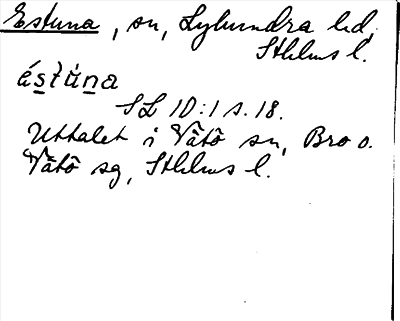 Estuna, sn, Lyhundra hd,
Sthlms l.
ástúna
SL 10:1 s. 18.
Uttalet i Vätö sn, Bro o.
Vätö sg, Sthlms l.